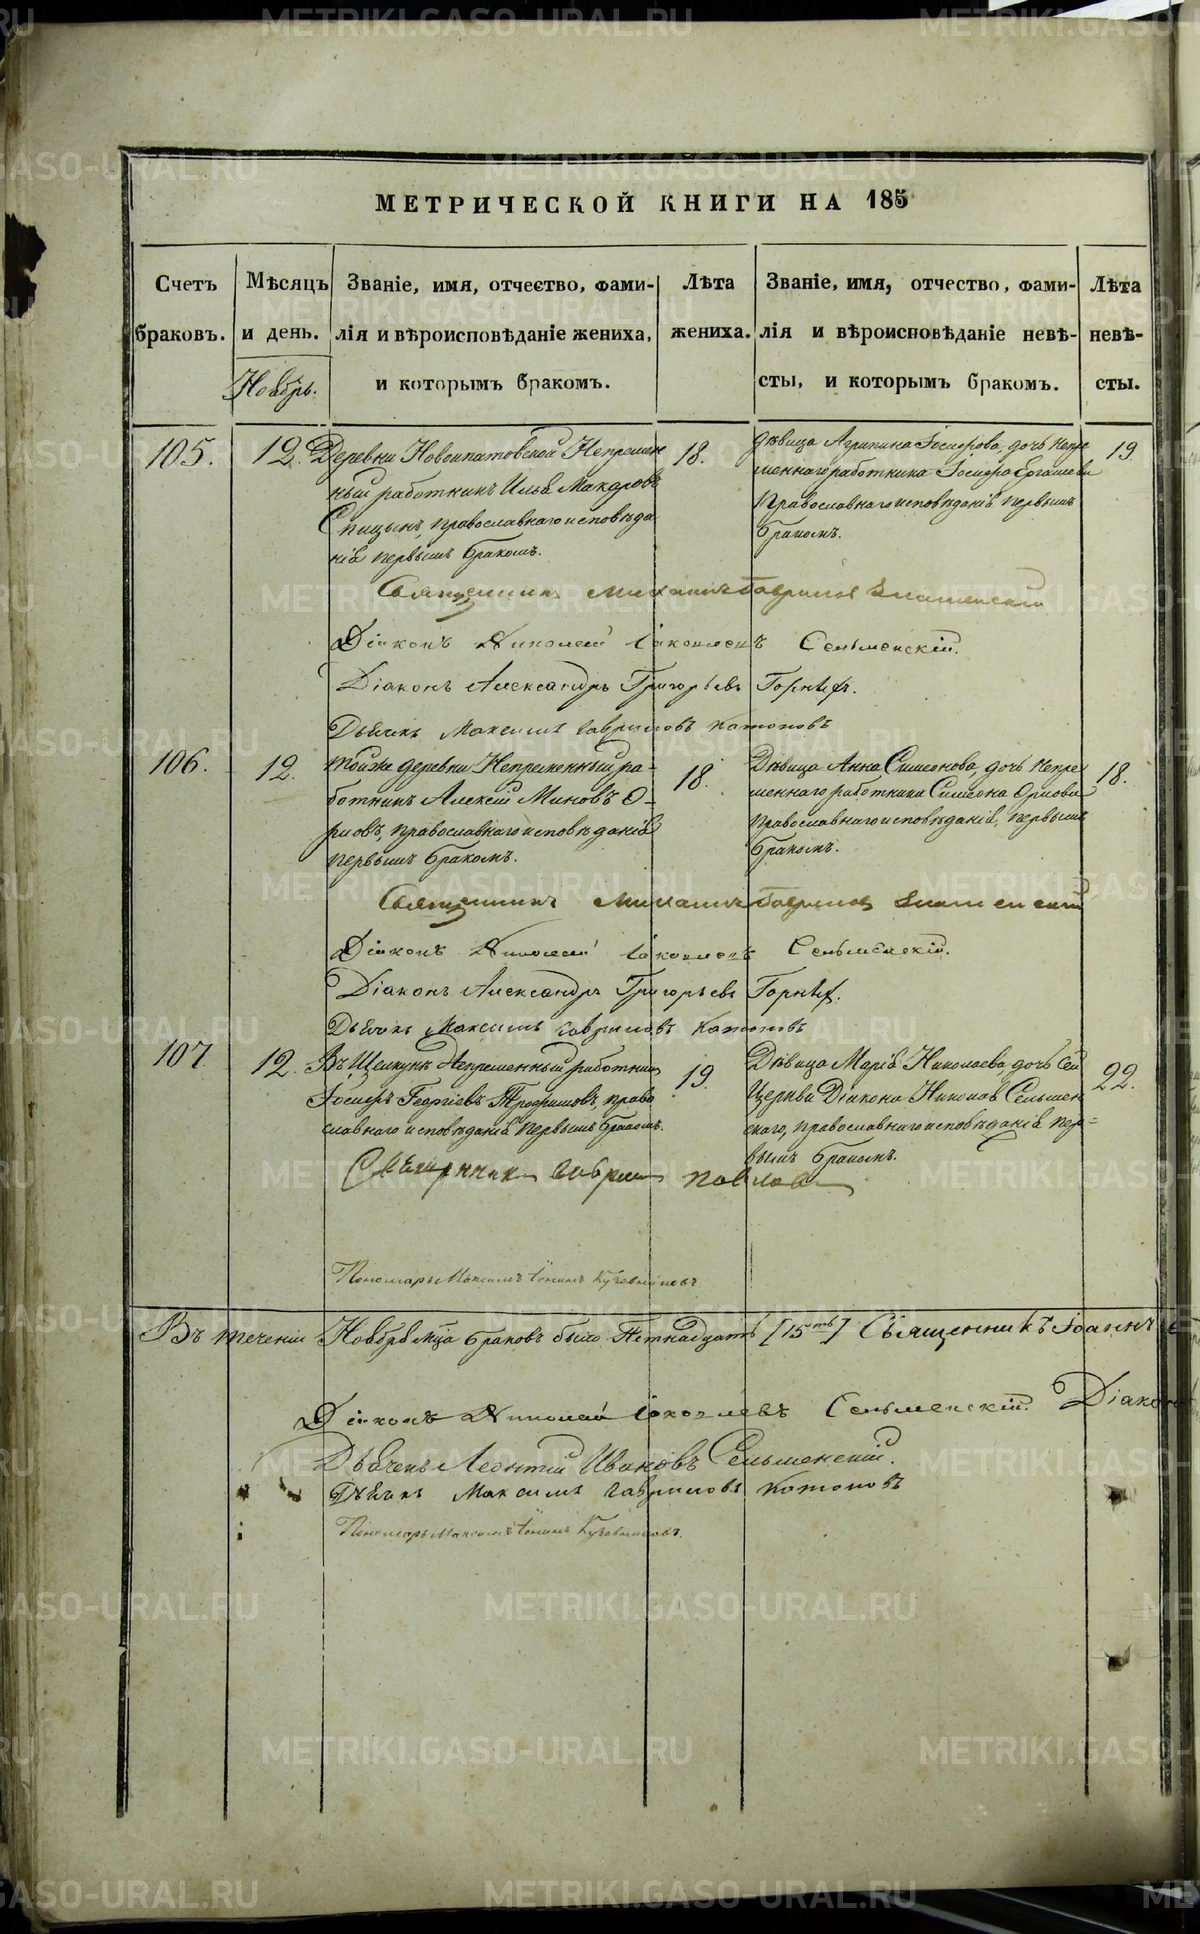 МЕТРИЧЕСКОЙ КНИГИ НА 185
Счетъ браковъ.
Мѣсяцъ и день.
Ноябрь.
Званіе, имя, отчество, фами-
лія и вѣроисповѣданіе жениха,
и которымъ бракомъ.
Лѣта
жениха.
Званіе, имя, отчество, фами-
лія и вѣроисповѣданіе невѣ-
сты, и которымъ бракомъ.
Лѣта
невѣ-
сты.
105.
12.
Деревни Новоипатовской Непремен
ный работникъ Илья Макаровъ
Спицынъ, православнаго исповѣда
нія первымъ бракомъ.
18.
Дѣвица Агрипина Іосифова, дочь непре
меннаго работника Іосифа
Православнаго исповѣданія первымъ
бракомъ.
19.
Священникъ Михаилъ Гавриловъ
Діаконъ Николай Іаковлевъ Сельменскій.
Діаконъ Александръ Григорьевъ
Дьячекъ Максимъ Гавриловъ Катоповъ
106.
12.
Той же деревни Непременный ра-
ботникъ Алексей Миновъ О-
рловъ, православнаго исповѣданія
первымъ бракомъ.
18.
Дѣвица Анна Симеонова, дочь непре
меннаго работника Симеона Орлова
православнаго исповѣданія, первымъ
бракомъ.
18.
Священникъ Михаилъ Гавриловъ
Діаконъ Николай Іаковлевъ Сельменскій.
Діаконъ Александръ Григорьевъ
Дьячекъ Максимъ Гавриловъ Катоповъ
107.
12.
Непременный работникъ
Іосифъ Георгіевъ Трофимовъ, право
славнаго исповѣданія первымъ бракомъ.
19.
Дѣвица Марія Николаева, дочь сей
Церкви Діакона Николая Сельмен
скаго, православнаго исповѣданія пер-
вымъ бракомъ.
22.
Священникъ Гавриилъ Павловъ
Пономарь Максимъ
Въ теченіи Ноября мца браковъ было Петнадцать [15ть] Священникъ Іоаннъ
Діаконъ Николай Іаковлевъ Сельменскій. Діаконъ
Дьячекъ Леонтій Ивановъ Сельменскій.
Дьячекъ Максимъ Гавриловъ Катоповъ
Пономарь Максимъ
METRIKI.GASO-URAL.RU